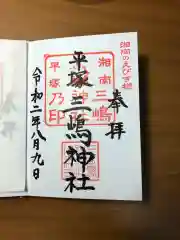 湘南のえびす様
奉拝
湘南三嶋
平塚乃印
平塚三嶋神社
令和二年八月九日